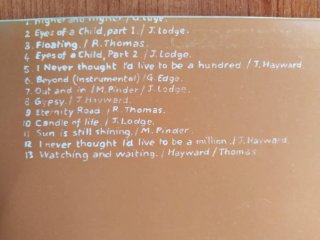 1 Higher and higher. / G. Edge.
2 Eyes of a Child, part 1. / J. Lodge.
3. Floating. / R. Thomas.
4 Eyes of a Child, Part 2 / J. Lodge.
5 I Never thought I'd live to be a hundred / J. Hayward.
6 Beyond (Instrumental) / G. Edge.
7. Out and in / M. Pinder / J. Lodge.
8 Gypsy. / J. Hayward.
9 Eternity Road / R. Thomas.
10 Candle of life. / J. Lodge.
11 Sun is still shining. / M. Pinder.
12 I never thought I'd live to be a million. / J. Hayward.
13 Watching and waiting. / Hayward / Thomas